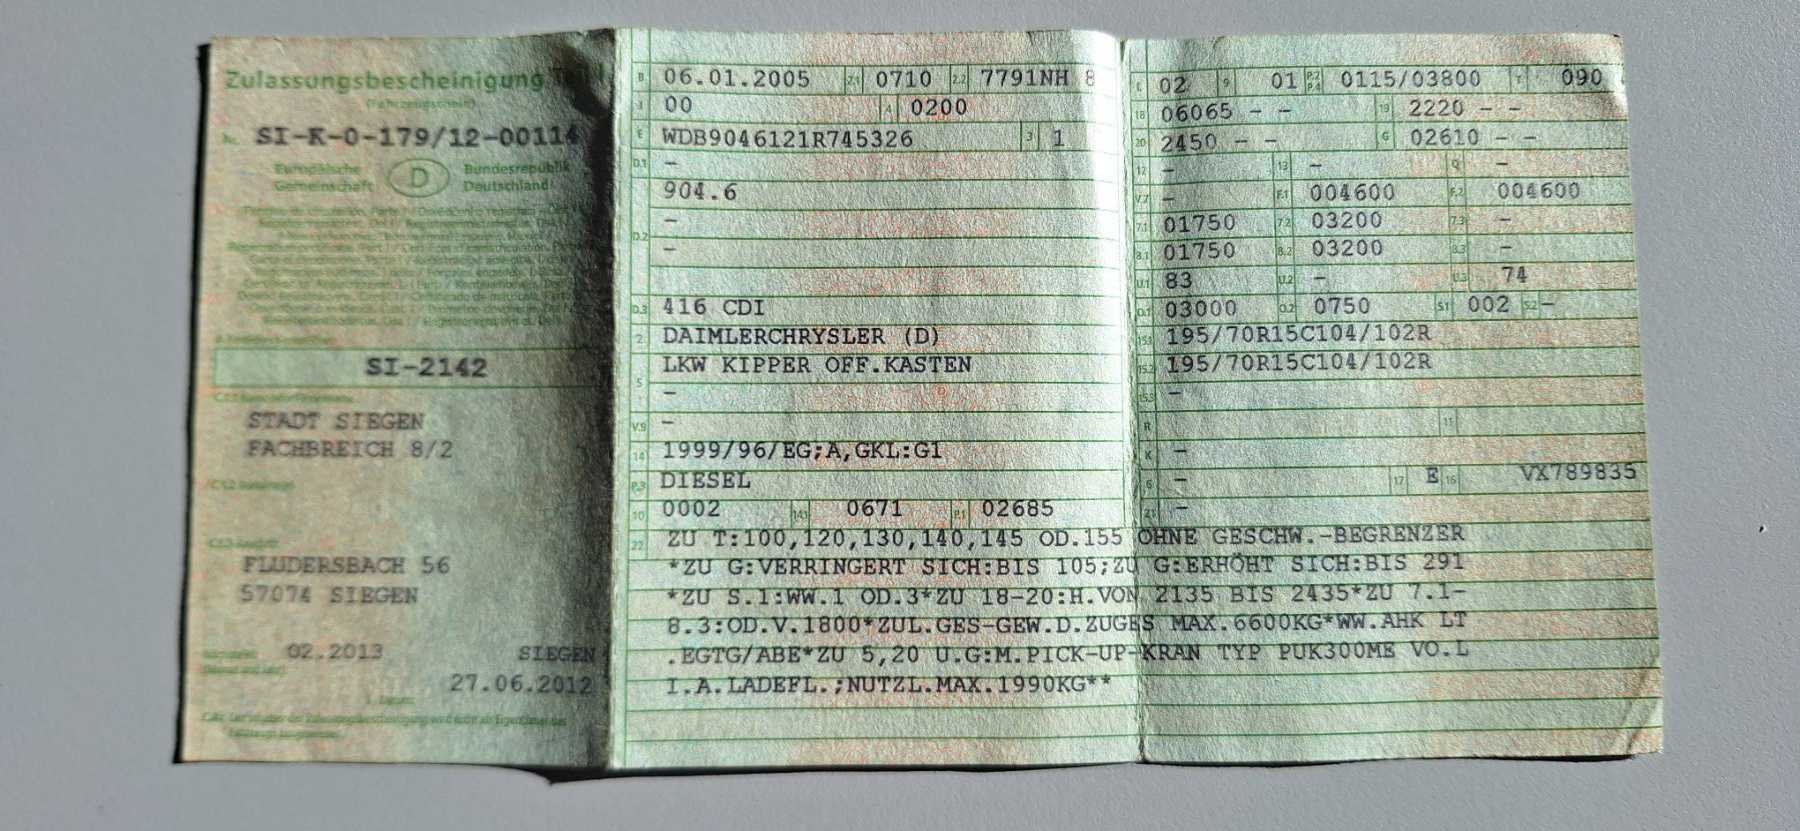 Zulassungsbescheinigung Teil I
(Fahrzeugschein)
Nr. SI-K-0-179/12-00114
Europäische Gemeinschaft D Bundesrepublik Deutschland
SI-2142
STADT SIEGEN
FACHBREICH 8/2
FLUDERSBACH 56
57074 SIEGEN
02.2013 SIEGEN
27.06.2012
B 06.01.2005 2.1 0710 2.2 7791NH 8
J 00 4 0200
E WDB9046121R745326 3 1
D.1 –
904.6
D.2 –
–
D.3 416 CDI
2 DAIMLERCHRYSLER (D)
5 LKW KIPPER OFF.KASTEN
–
V.9 –
14 1999/96/EG;A,GKL:G1
P.3 DIESEL
10 0002 14.1 0671 P.1 02685
L 02 9 01 P.2 P.4 0115/03800 T 090
18 06065 – – 19 2220 – –
20 2450 – – G 02610 – –
12 – 13 – Q –
V.7 – F.1 004600 F.2 004600
7.1 01750 7.2 03200 7.3 –
8.1 01750 8.2 03200 8.3 –
U.1 83 U.2 – U.3 74
O.1 03000 O.2 0750 S.1 002 S.2 –
15.1 195/70R15C104/102R
15.2 195/70R15C104/102R
15.3 –
R 11
K –
6 – 17 E 16 VX789835
21 –
22 ZU T:100,120,130,140,145 OD.155 OHNE GESCHW.-BEGRENZER
*ZU G:VERRINGERT SICH:BIS 105;ZU G:ERHÖHT SICH:BIS 291
*ZU S.1:WW.1 OD.3*ZU 18-20:H.VON 2135 BIS 2435*ZU 7.1-
8.3:OD.V.1800*ZUL.GES-GEW.D.ZUGES MAX.6600KG*WW.AHK LT
.EGTG/ABE*ZU 5,20 U.G:M.PICK-UP-KRAN TYP PUK300ME VO.L
I.A.LADEFL.;NUTZL.MAX.1990KG**